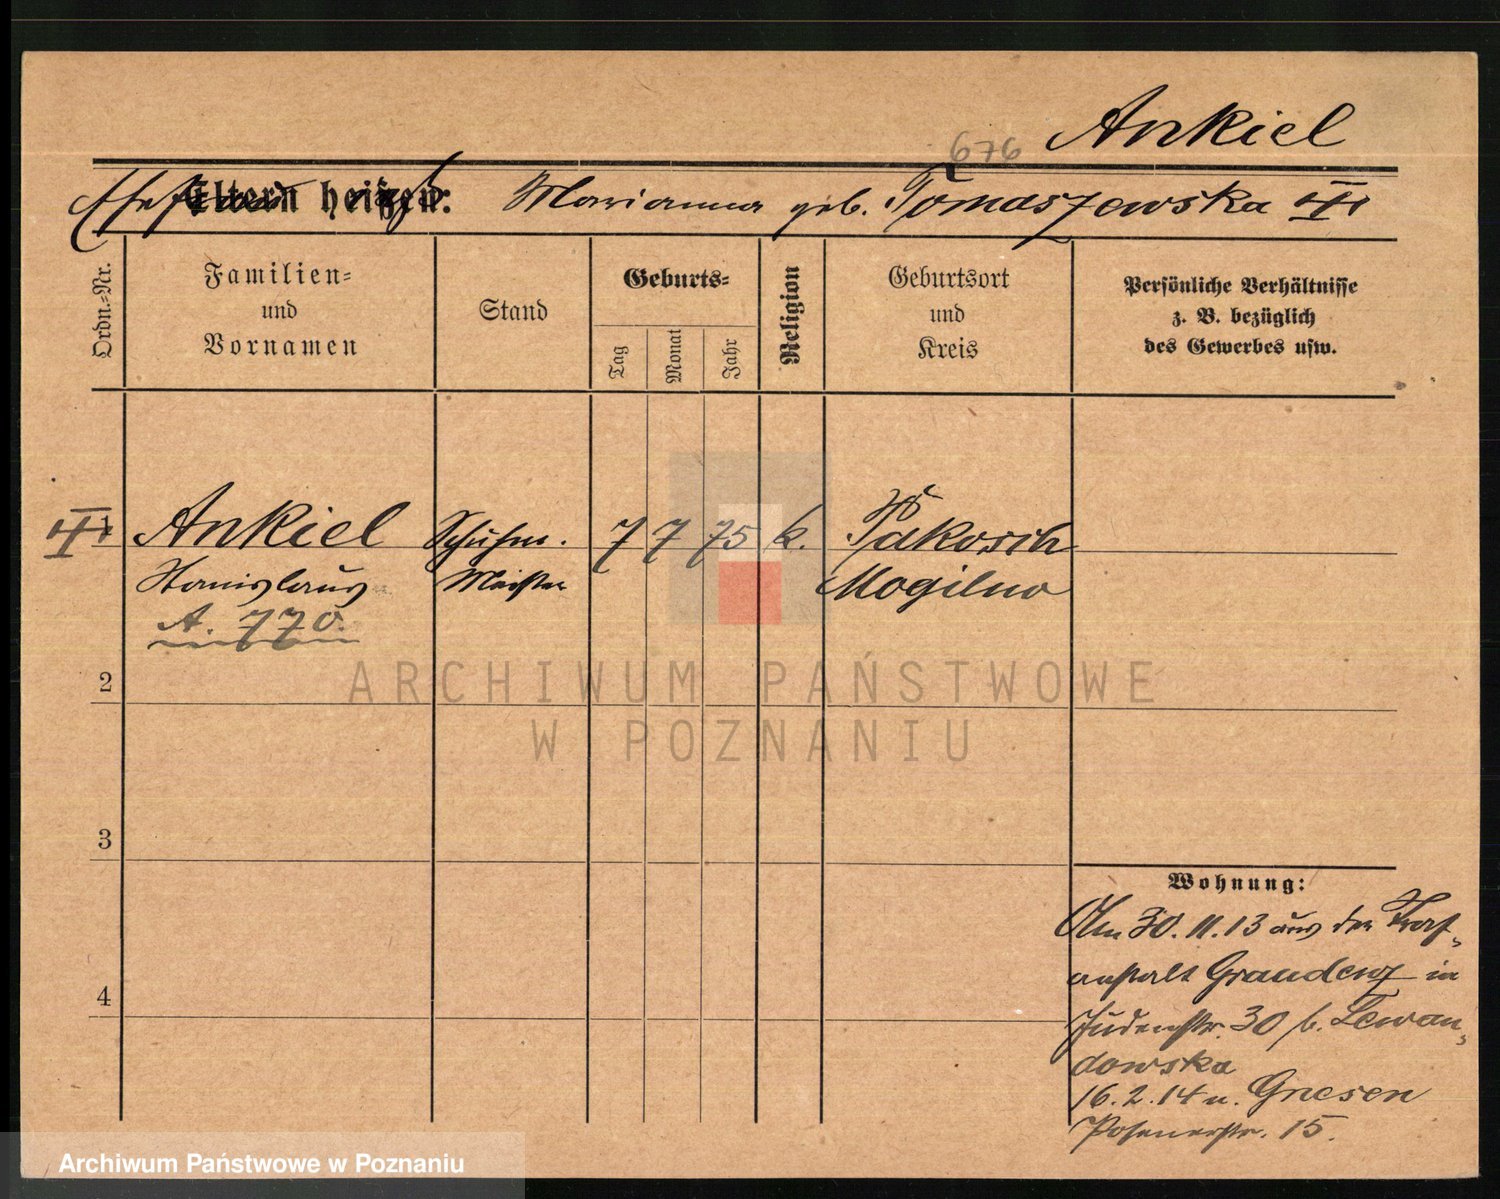 Ankiel
676
Eltern heißen: Marianna geb. Tomaszewska
Ordn.-Nr.
Familien-
und
Vornamen
Stand
Geburts-
Tag
Monat
Jahr
Religion
Geburtsort
und
Kreis
Persönliche Verhältnisse
z. B. bezüglich
des Gewerbes usw.
1 Ankiel Schuhm. 7 7 75 k. Pakosch
Stanislaus Meister Mogilno
A. 770.
2
3
4
Wohnung:
Am 30.11.13 aus der Straf-
anstalt Graudenz in
Judenstr. 30 b. Lewan-
dowska
16.2.14 n. Gnesen
Posenerstr. 15.
ARCHIWUM PAŃSTWOWE
W POZNANIU
Archiwum Państwowe w Poznaniu